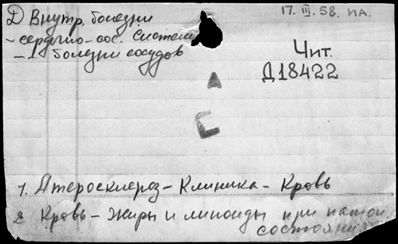 Д Внутр. болезни
17.III.58. НА.
- сердечно-сос. систем
- 1 болезни сосудов
Чит.
Д18422
А
С
1. Атеросклероз - Клиника - Кровь
2 Кровь - Жиры и липоиды при патол
состояни